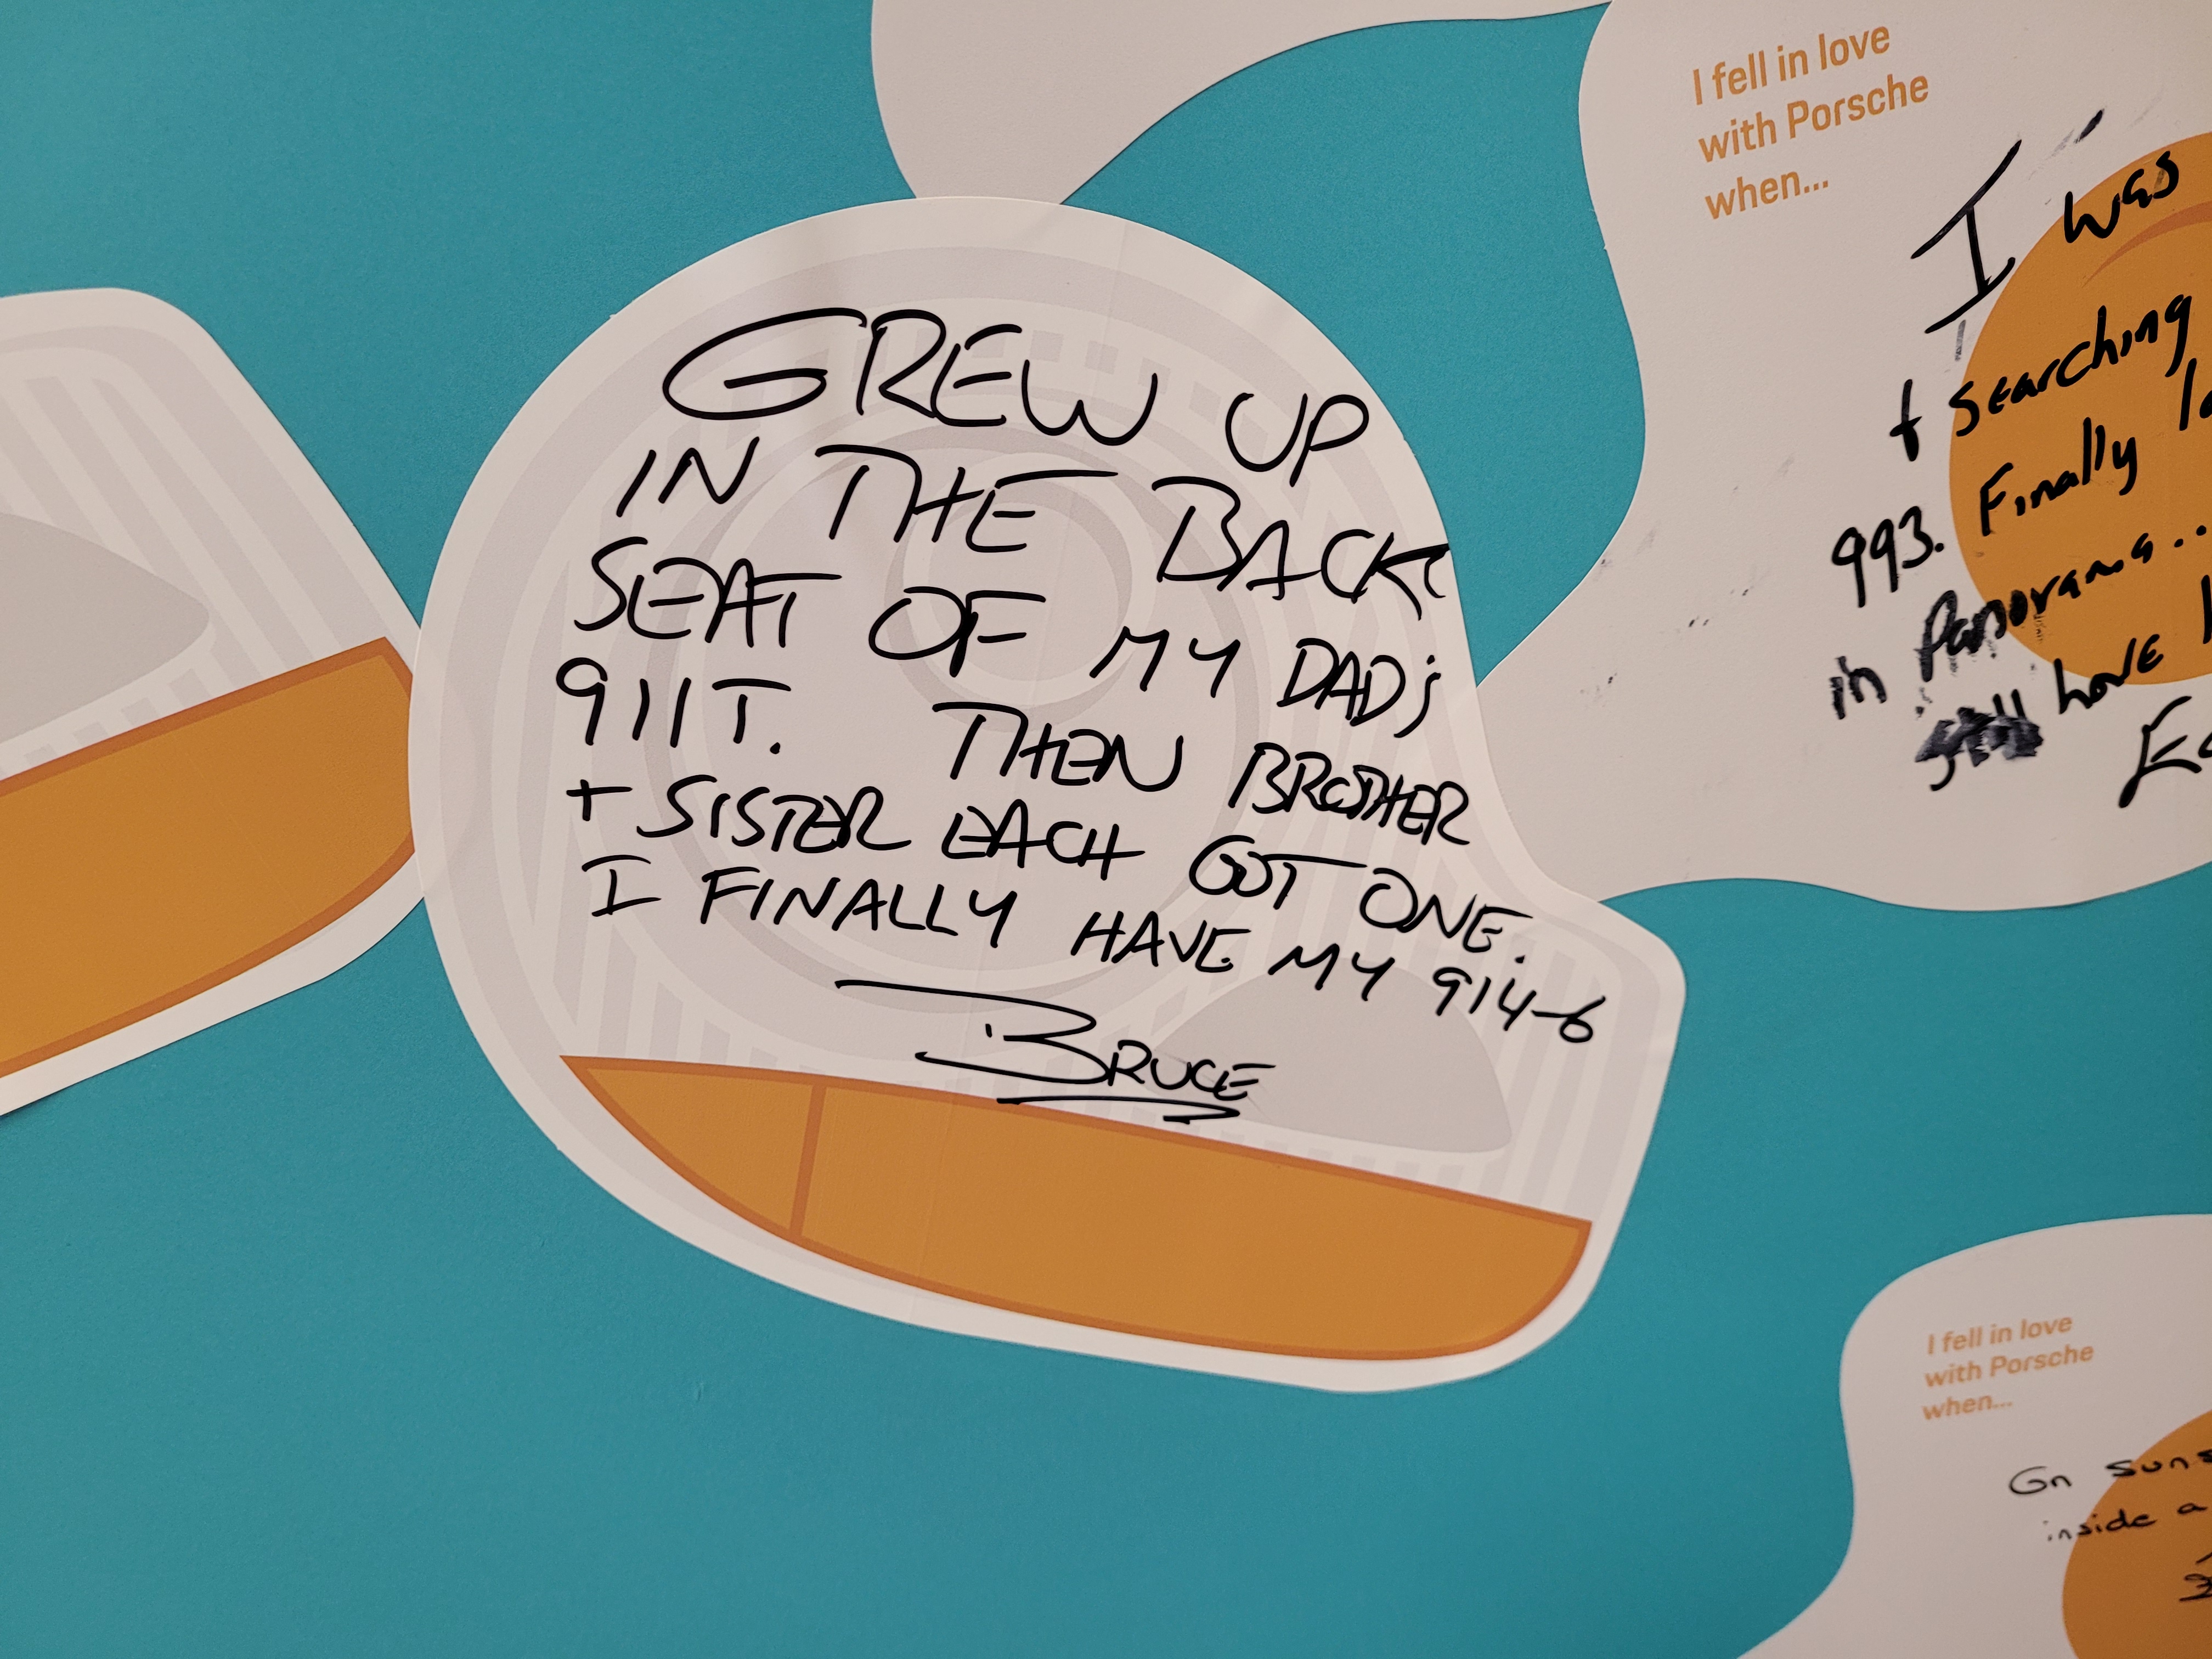 GREW UP
IN THE BACK
SEAT OF MY DADS
911T. THEN BROTHER
+ SISTER EACH GOT ONE.
I FINALLY HAVE MY 914-6
BRUCE
I fell in love
with Porsche
when...
I was
+ searching
993. Finally
in Panorama..
still have
I fell in love
with Porsche
when...
On
inside a